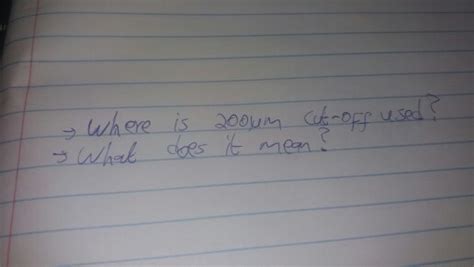 → Where is 200μm Cut-off used?
→ What does it mean?